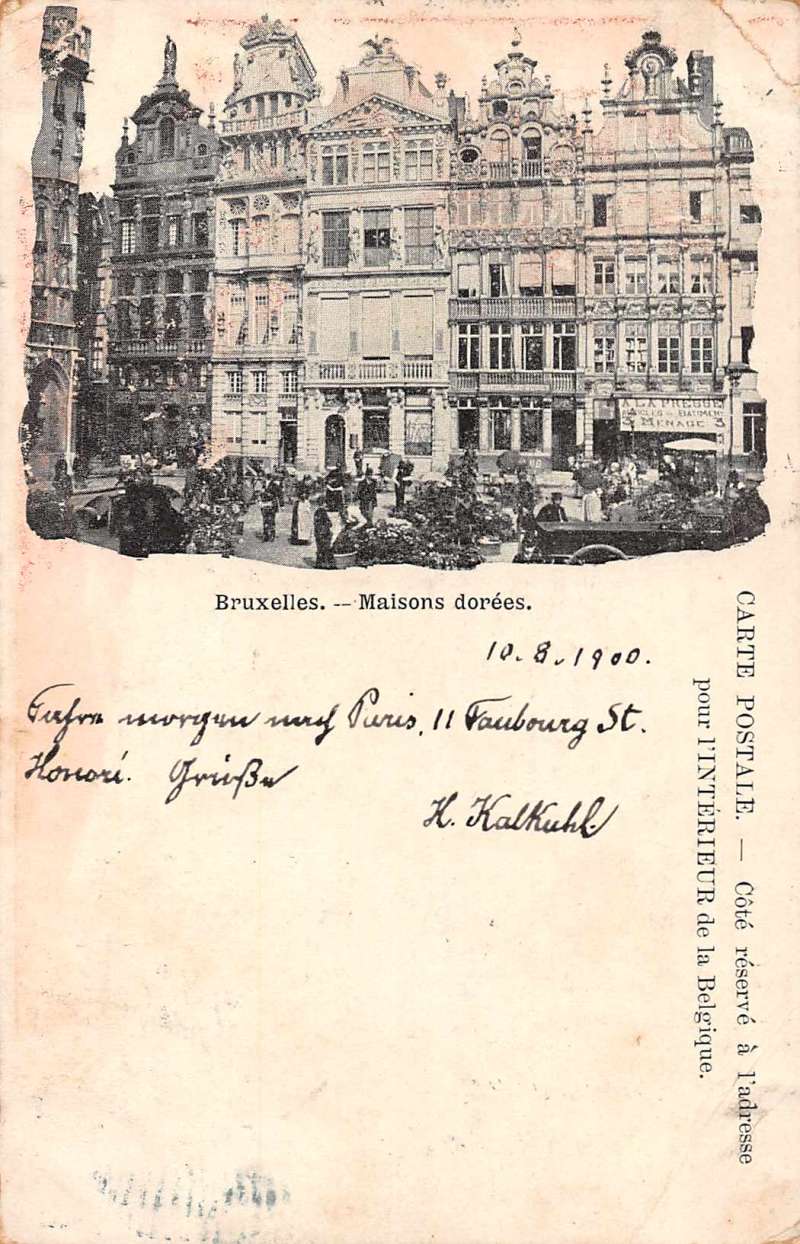 A LA PRESSE
ARTICLES DE BATIMENT
MENAGE
Bruxelles. -- Maisons dorées.
10. 8. 1900.
Fahre morgen nach Paris, 11 Faubourg St.
Honoré. Grüße
H. Kalkuhl.
CARTE POSTALE. — Côté réservé à l'adresse
pour l'INTÉRIEUR de la Belgique.